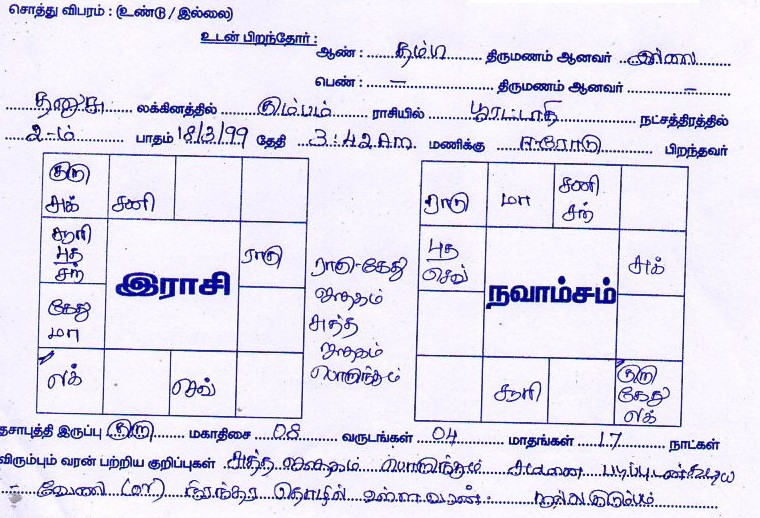 சொத்து விபரம் : (உண்டு / இல்லை)
உடன் பிறந்தோர் :
ஆண் : தம்பி திருமணம் ஆனவர் இல்லை
பெண் : – திருமணம் ஆனவர் –
தனுசு லக்கினத்தில் கும்பம் ராசியில் பூரட்டாதி நட்சத்திரத்தில்
2-ம் பாதம் 18/3/99 தேதி 3:42 A.m. மணிக்கு ஈரோடு பிறந்தவர்
குரு
சுக் சனி
சூரி
புத
சந்
ராகு
இராசி
கேது
மா
லக் செவ்
ராகு-கேது
ஜாதகம்
சுத்த
ஜாதகம்
பொருந்தும்
ராகு மா சனி
சந்
புத
செவ்
சுக்
நவாம்சம்
சூரி குரு
கேது
லக்
தசாபுத்தி இருப்பு குரு மகாதிசை 08 வருடங்கள் 04 மாதங்கள் 17 நாட்கள்
விரும்பும் வரன் பற்றிய குறிப்புகள் சுத்த ஜாதகம் பொருந்தும்
– வேலை (or) நிரந்தர தொழில் உள்ள வரன். நல்ல குடும்பம்